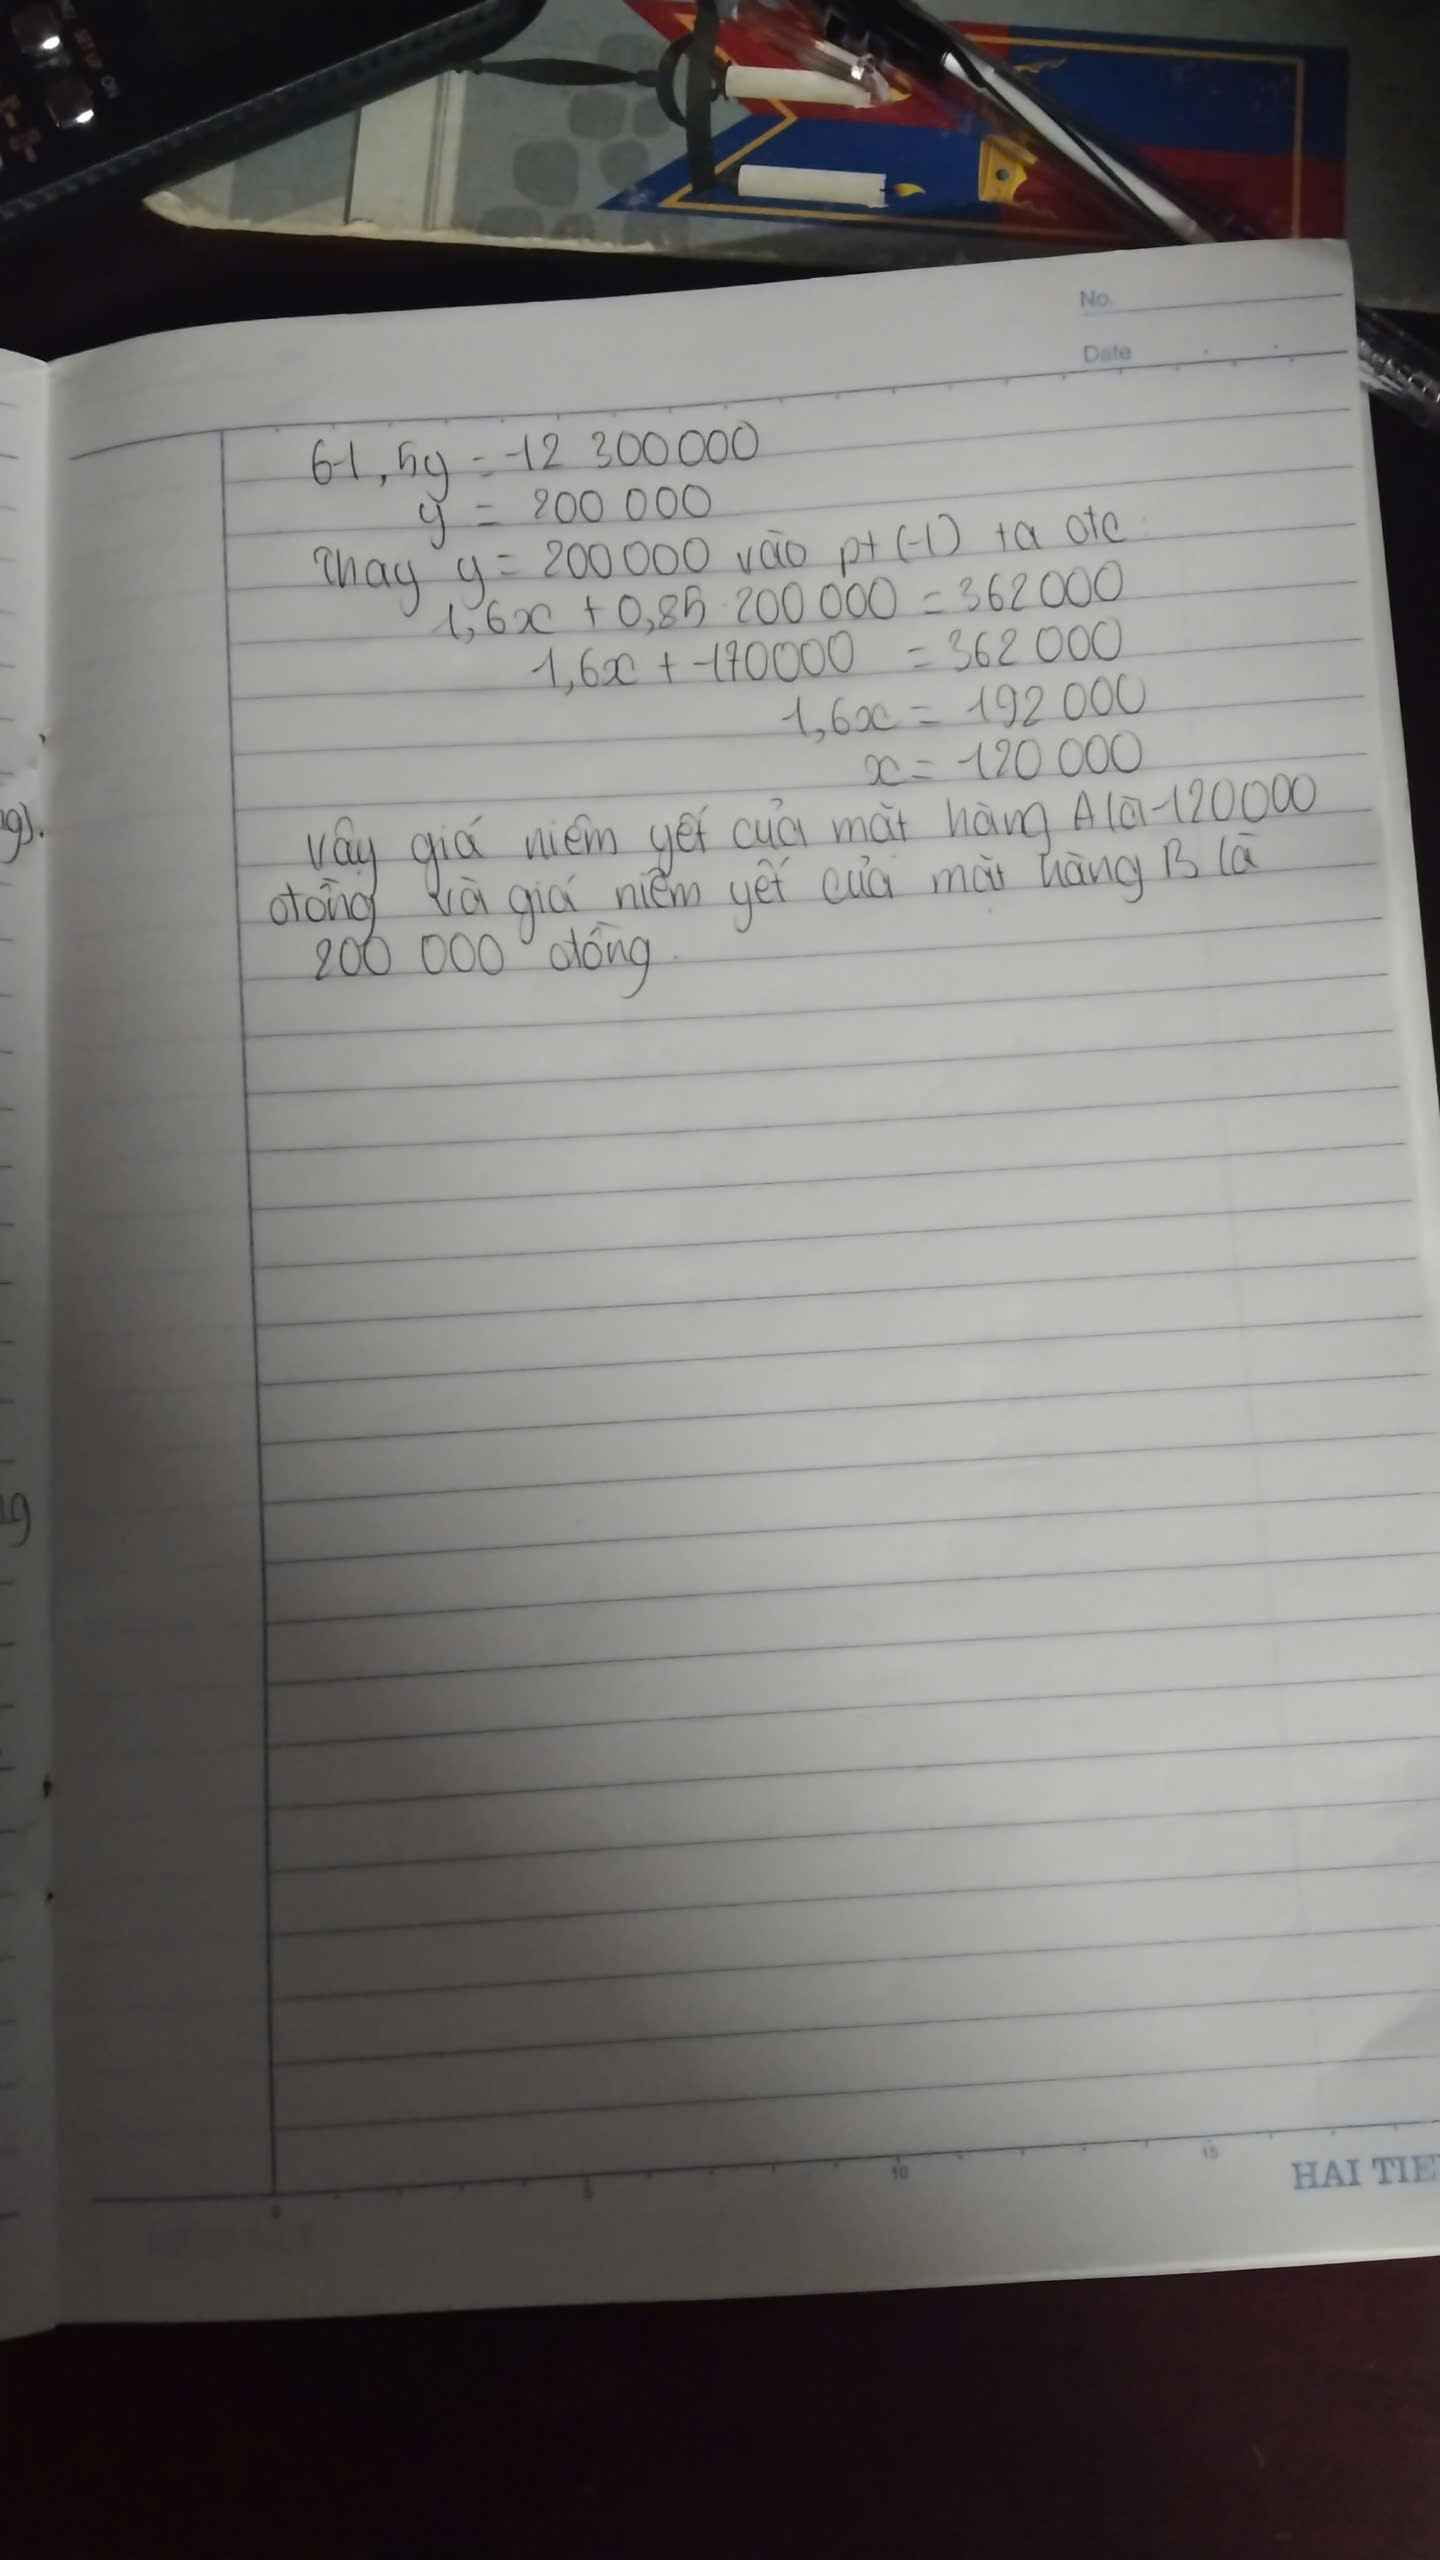 No.
Date
61,5y = 12 300 000
y = 200 000
Thay y = 200 000 vào pt (1) ta đc
1,6x + 0,85 . 200 000 = 362 000
1,6x + 170000 = 362 000
1,6x = 192 000
x = 120 000
Vậy giá niêm yết của mặt hàng A là 120000
đồng và giá niêm yết của mặt hàng B là
200 000 đồng.
0 5 10 15
HAI TIE